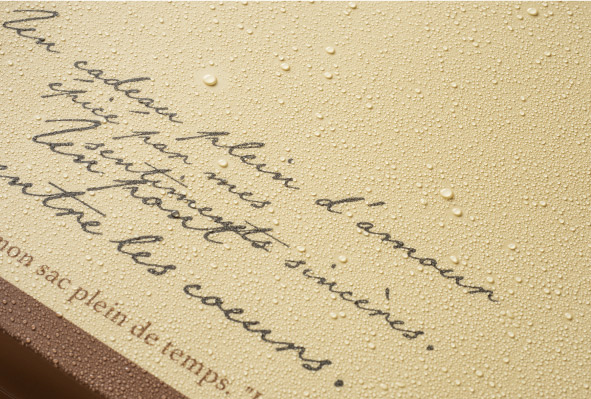 Un cadeau plein d'amour
épicé par mes
sentiments sincères.
Un pont
entre les coeurs.
mon sac plein de temps. "